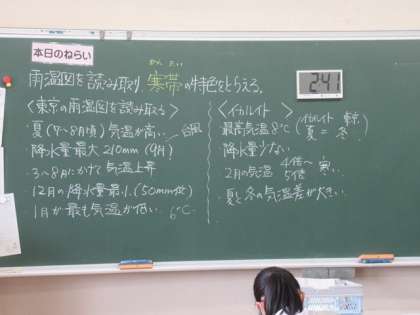 本日のねらい
かん たい
雨温図を読み取り、寒帯の特色をとらえる。
2:41
<東京の雨温図を読み取る>
夏(7~8月頃)気温が高い
台風
降水量最大210mm(9月)
3~8月にかけて気温上昇
12月の降水量最小(50mm位)
1月が最も気温が低い
6℃
<イカルイト>
最高気温8℃
イカルイト 東京
夏 = 冬
降水量少ない
2月の気温
4倍~
5倍
寒い
・夏と冬の気温差が大きい